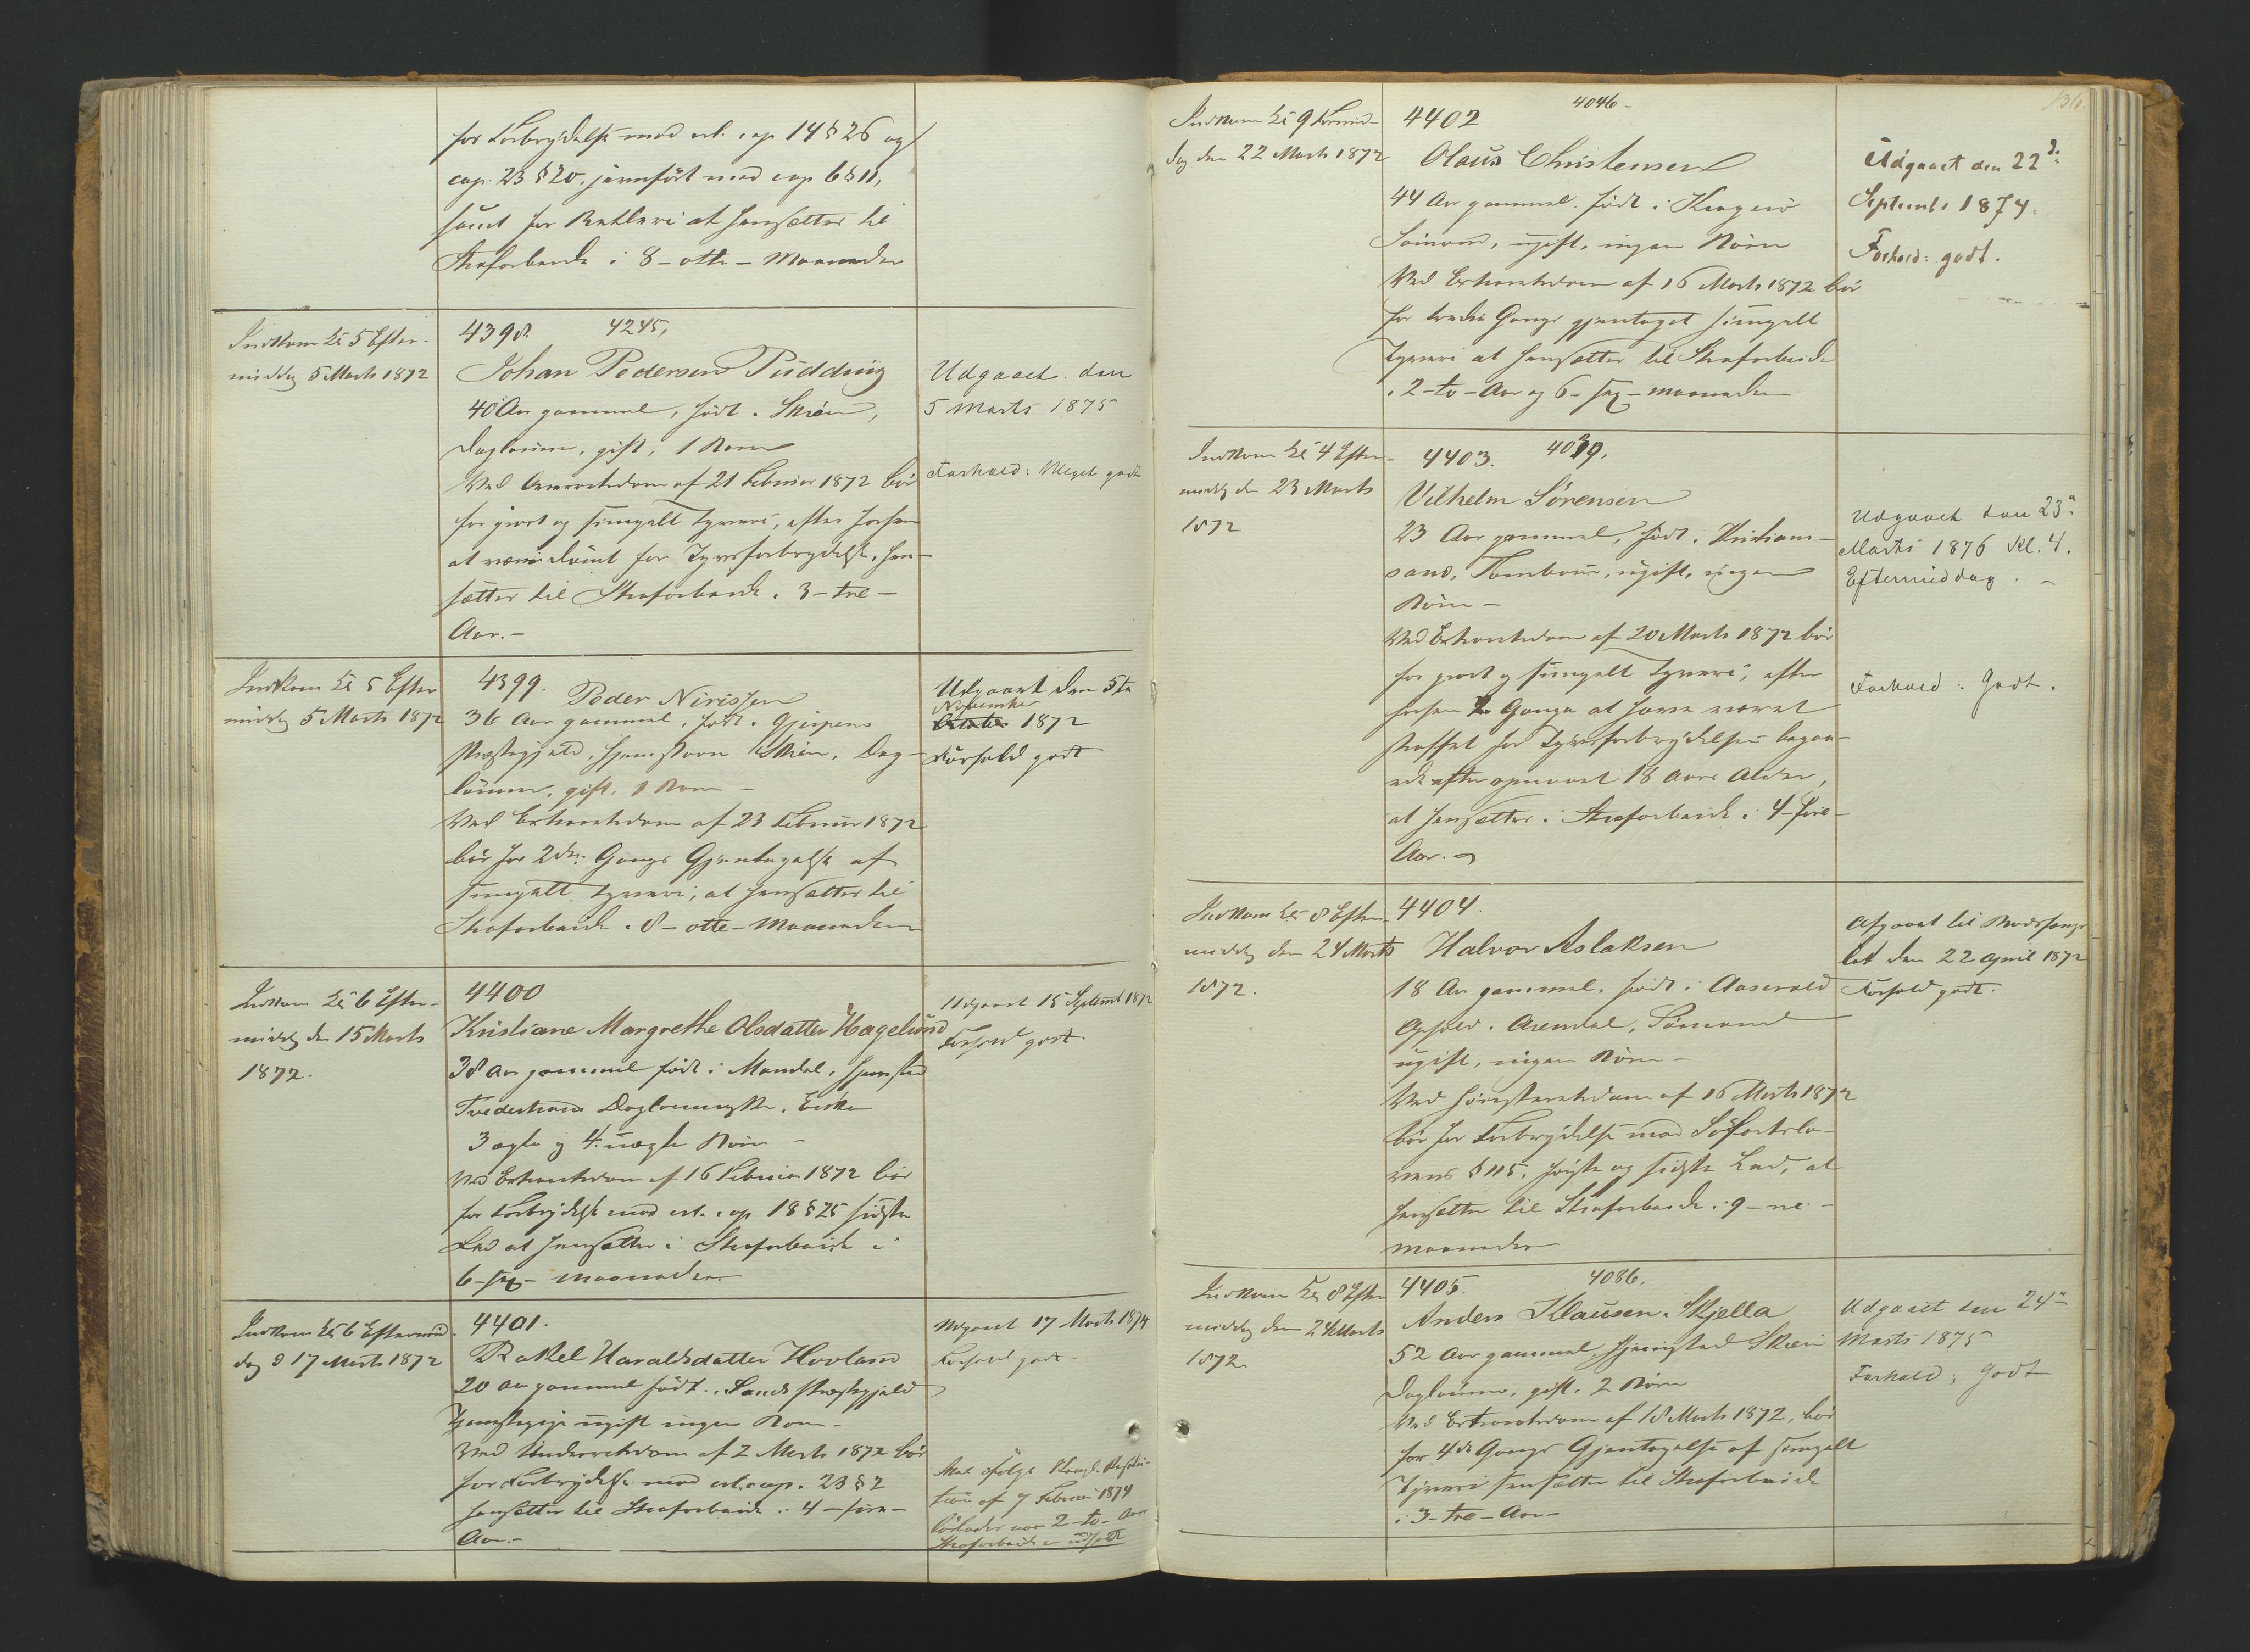 for Forbrydelse mod crl. cap 14 § 26 og
cap. 23 § 20, jevnført med cap 6 § 11,
samt for Betleri at hensættes til
Strafarbeide i 8 - otte - Maaneder
Indkom Kl 5 Efter-
middag 5 Marts 1872
4398. 4245,
Johan Pedersen Pudding
40 Aar gammel, født i Skien,
Dagleiner, gift, 1 Barn
Ved Overretsdom af 21 Februar 1872 bør
for grovt og simpelt Tyveri, efter forhen
at være dømt for Tyvsforbrydelse, hen-
sættes til Strafarbeide i 3 - tre -
Aar. -
Udgaaet den
5 Marts 1875
Forhold: Meget godt
Indkom Kl 5 Efter
middag 5 Marts 1872
4399.
Peder Nirissen
36 Aar gammel, født i Gjerpens
Præstegjeld, Hjemstavn Skien, Dag-
leiner, gift, 1 Barn -
Ved Extraretsdom af 23 Februar 1872
bør for 2den Gangs Gjentagelse af
simpelt Tyveri, at hensættes til
Strafarbeide i 8 - otte - Maaneder
Udgaaet den 5te
November
Oktober 1872
Forhold godt
Indkom Kl 6 Efter-
middag den 15 Marts
1872.
4400
Kristiane Margrethe Olsdatter Hagelund
38 Aar gammel født i Mandal, Hjemsted
Tvedestrand Daglønnerske, Enke
3 ægte og 4 uægte Børn -
Ved Extraretsdom af 16 Februar 1872 bør
for Forbrydelse mod crl. cap 18 § 25 sidste
Led at hensættes i Strafarbeide i
6 - sex - Maaneder
Udgaaet 15 Septemb 1872
Forhold godt
Indkom Kl 6 Eftermid
dag d 17 Marts 1872
4401.
Rakel Haraldsdatter Hovland
20 Aar gammel født i Sands Præstegjeld
Tjenestepige ugift ingen Børn -
Ved Underretsdom af 2 Marts 1872 bør
for Forbrydelse mod crl. cap. 23 § 2
hensættes til Strafarbeide i 4 - fire -
Aar. -
Udgaaet 17 Marts 1874
Forhold godt -
Skal ifølge Kongl. Resolu-
tion af 7 Februar 1874
løslades naar 2 - to - Aars
Strafarbeide er udholdt
Indkom Kl 9 Formid-
dag den 22 Marts 1872
4402 4046 -
Olaus Christensen
44 Aar gammel, født i Kragerø
Sømand, ugift, ingen Børn
Ved Extraretsdom af 16 Marts 1872 bør
for tredie Gangs gjentaget simpelt
Tyveri at hensættes til Strafarbeide
i 2 - to - Aar og 6 - sex - Maaneder
Udgaaet den 22d:
Septembr 1874.
Forhold: godt.
Indkom Kl 4 Efter-
middag den 23 Marts
1872
4403. 4039.
Vilhelm Sørensen
23 Aar gammel, født i Kristians-
sand, Tombour, ugift, ingen
Børn -
Ved Extraretsdom af 20 Marts 1872 bør
for grovt og simpelt Tyveri, efter
forhen 2 Gange at have været
straffet for Tyvsforbrydelser begaa-
ede efter opnaaet 18 Aars Alder,
at hensættes i Strafarbeide i 4 - fire -
Aar. -
Udgaaet den 23de
Marts 1876 Kl. 4.
Eftermiddag. -
Forhold: Godt.
Indkom Kl 8 Efter-
middag den 24 Marts
1872.
4404.
Halvor Aslaksen
18 Aar gammel, født i Aaserald
Ophold i Arendal, Sømand
ugift, ingen Børn -
Ved Høiesteretsdom af 16 Marts 1872
bør for Forbrydelse mod Søfartslo-
vens § 115, første og sidste Led, at
hensættes til Strafarbeide i 9 - ni -
Maaneder
Afgaaet til Bodsfængs
let den 22 April 1872
Forhold godt.
Indkom Kl 8 Efter
middag den 24 Marts
1872
4405. 4086.
Anders Klausen Skjella
52 Aar gammel, Hjemsted Skien
Dagleiner, gift, 2 Børn
Ved Extraretsdom af 18 Marts 1872, bør
for 4de Gangs Gjentagelse af simpelt
Tyveri hensættes til Strafarbeide
i 3 - tre - Aar -
Udgaaet den 24de
Marts 1875
Forhold: Godt